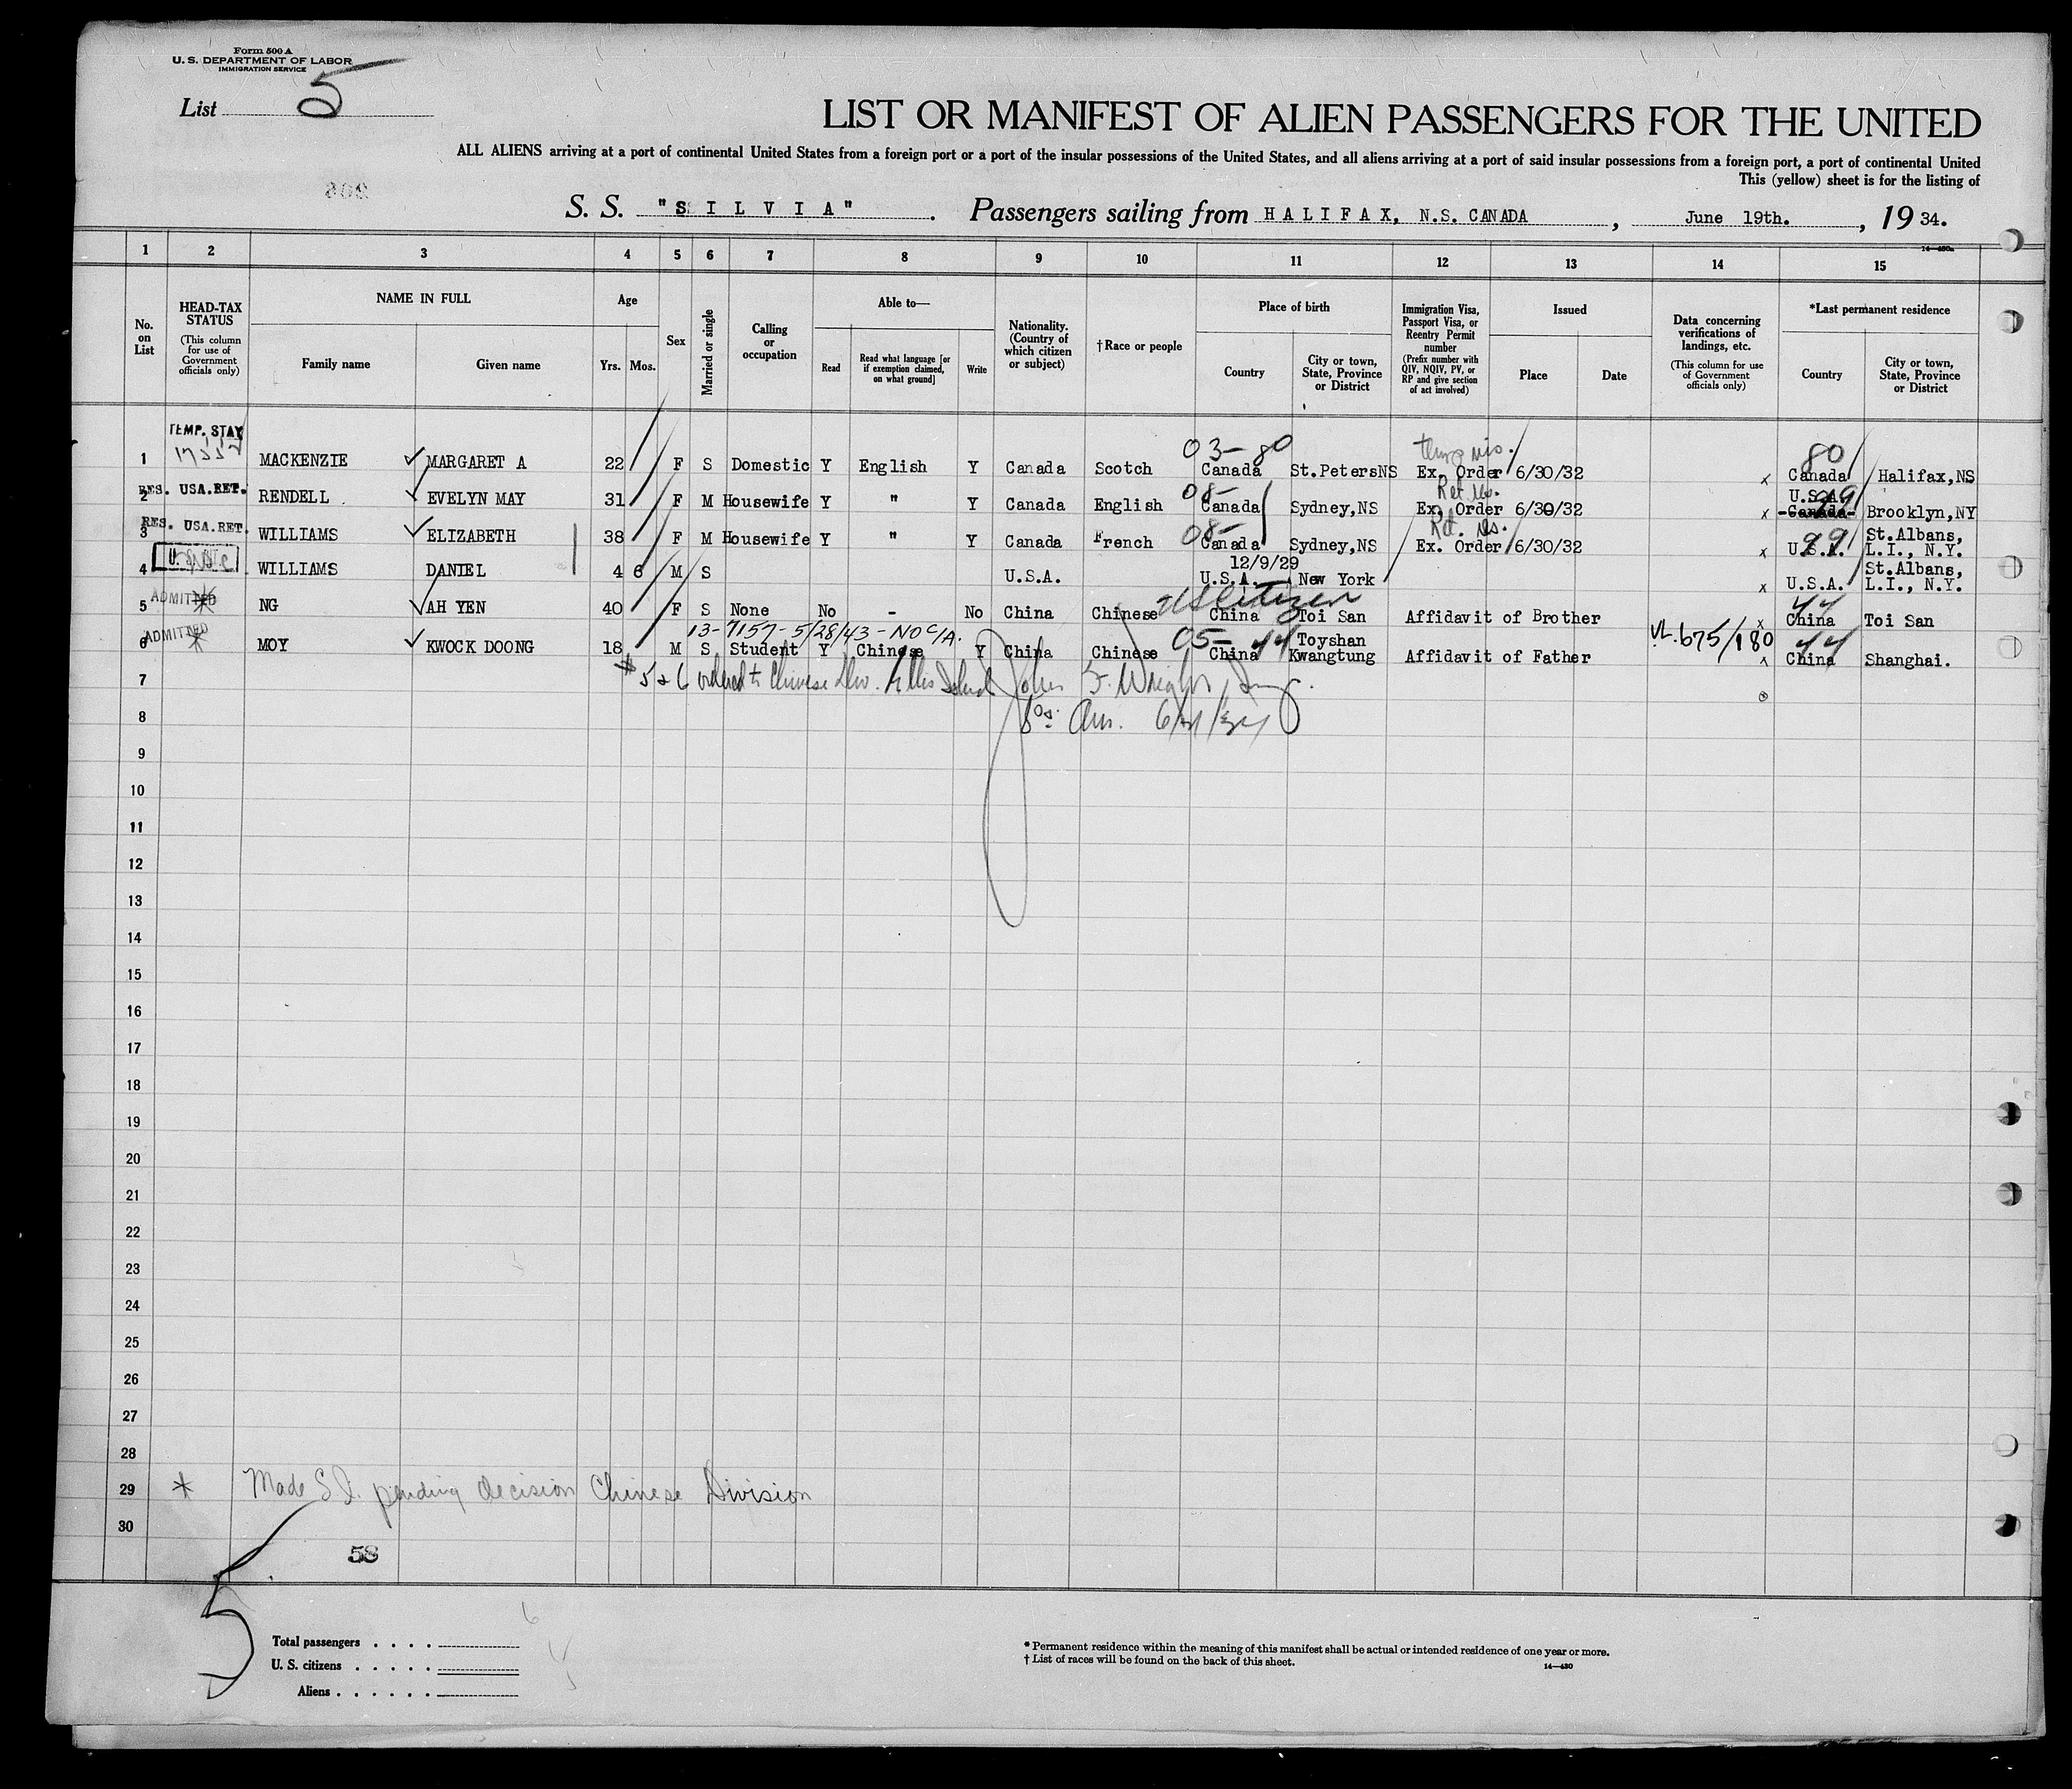 Form 500 A
U. S. DEPARTMENT OF LABOR
IMMIGRATION SERVICE
List 5
LIST OR MANIFEST OF ALIEN PASSENGERS FOR THE UNITED
ALL ALIENS arriving at a port of continental United States from a foreign port or a port of the insular possessions of the United States, and all aliens arriving at a port of said insular possessions from a foreign port, a port of continental United
This (yellow) sheet is for the listing of
S. S. "SILVIA". Passengers sailing from HALIFAX, N.S. CANADA, June 19th., 1934.
14—480a
1 2 3 4 5 6 7 8 9 10 11 12 13 14 15
No. on List
HEAD-TAX STATUS
(This column for use of Government officials only)
NAME IN FULL
Family name
Given name
Age
Yrs. Mos.
Sex
Married or single
Calling or occupation
Able to—
Read
Read what language [or if exemption claimed, on what ground]
Write
Nationality. (Country of which citizen or subject)
†Race or people
Place of birth
Country
City or town, State, Province or District
Immigration Visa, Passport Visa, or Reentry Permit number
(Prefix number with QIV, NQIV, PV, or RP and give section of act involved)
Issued
Place
Date
Data concerning verifications of landings, etc.
(This column for use of Government officials only)
*Last permanent residence
Country
City or town, State, Province or District
TEMP. STAY
03-80
80
1 MACKENZIE MARGARET A 22 F S Domestic Y English Y Canada Scotch Canada St.PetersNS Ex. Order 6/30/32 x Canada Halifax,NS
RES. USA.RET. 08- Ret. U.S.A. 99
2 RENDELL EVELYN MAY 31 F M Housewife Y " Y Canada English Canada Sydney,NS Ex. Order 6/30/32 x -Canada- Brooklyn,NY
RES. USA.RET. 08- Ret. 99 St.Albans,
3 WILLIAMS ELIZABETH 38 F M Housewife Y " Y Canada French Canada Sydney,NS Ex. Order 6/30/32 x U.S.A. L.I., N.Y.
12/9/29 St.Albans,
4 WILLIAMS DANIEL 4 6 M S U.S.A. U.S.A. New York x U.S.A. L.I., N.Y.
ADMITTED US Citizen 44
5 NG AH YEN 40 F S None No - No China Chinese China Toi San Affidavit of Brother x China Toi San
ADMITTED 13-7157-5/28/43-NO C/A. 05-44 Toyshan VL.675/180 44
6 MOY KWOCK DOONG 18 M S Student Y Chinese Y China Chinese China Kwangtung Affidavit of Father x China Shanghai.
7 # 5 & 6 ordered to Chinese Div. Ellis Island John F. Wright, Insp.
8
9
10
11
12
13
14
15
16
17
18
19
20
21
22
23
24
25
26
27
28
29 * Made S.I. pending decision Chinese Division
30
58
5
6
Total passengers
U. S. citizens
Aliens
* Permanent residence within the meaning of this manifest shall be actual or intended residence of one year or more.
† List of races will be found on the back of this sheet.
14—480